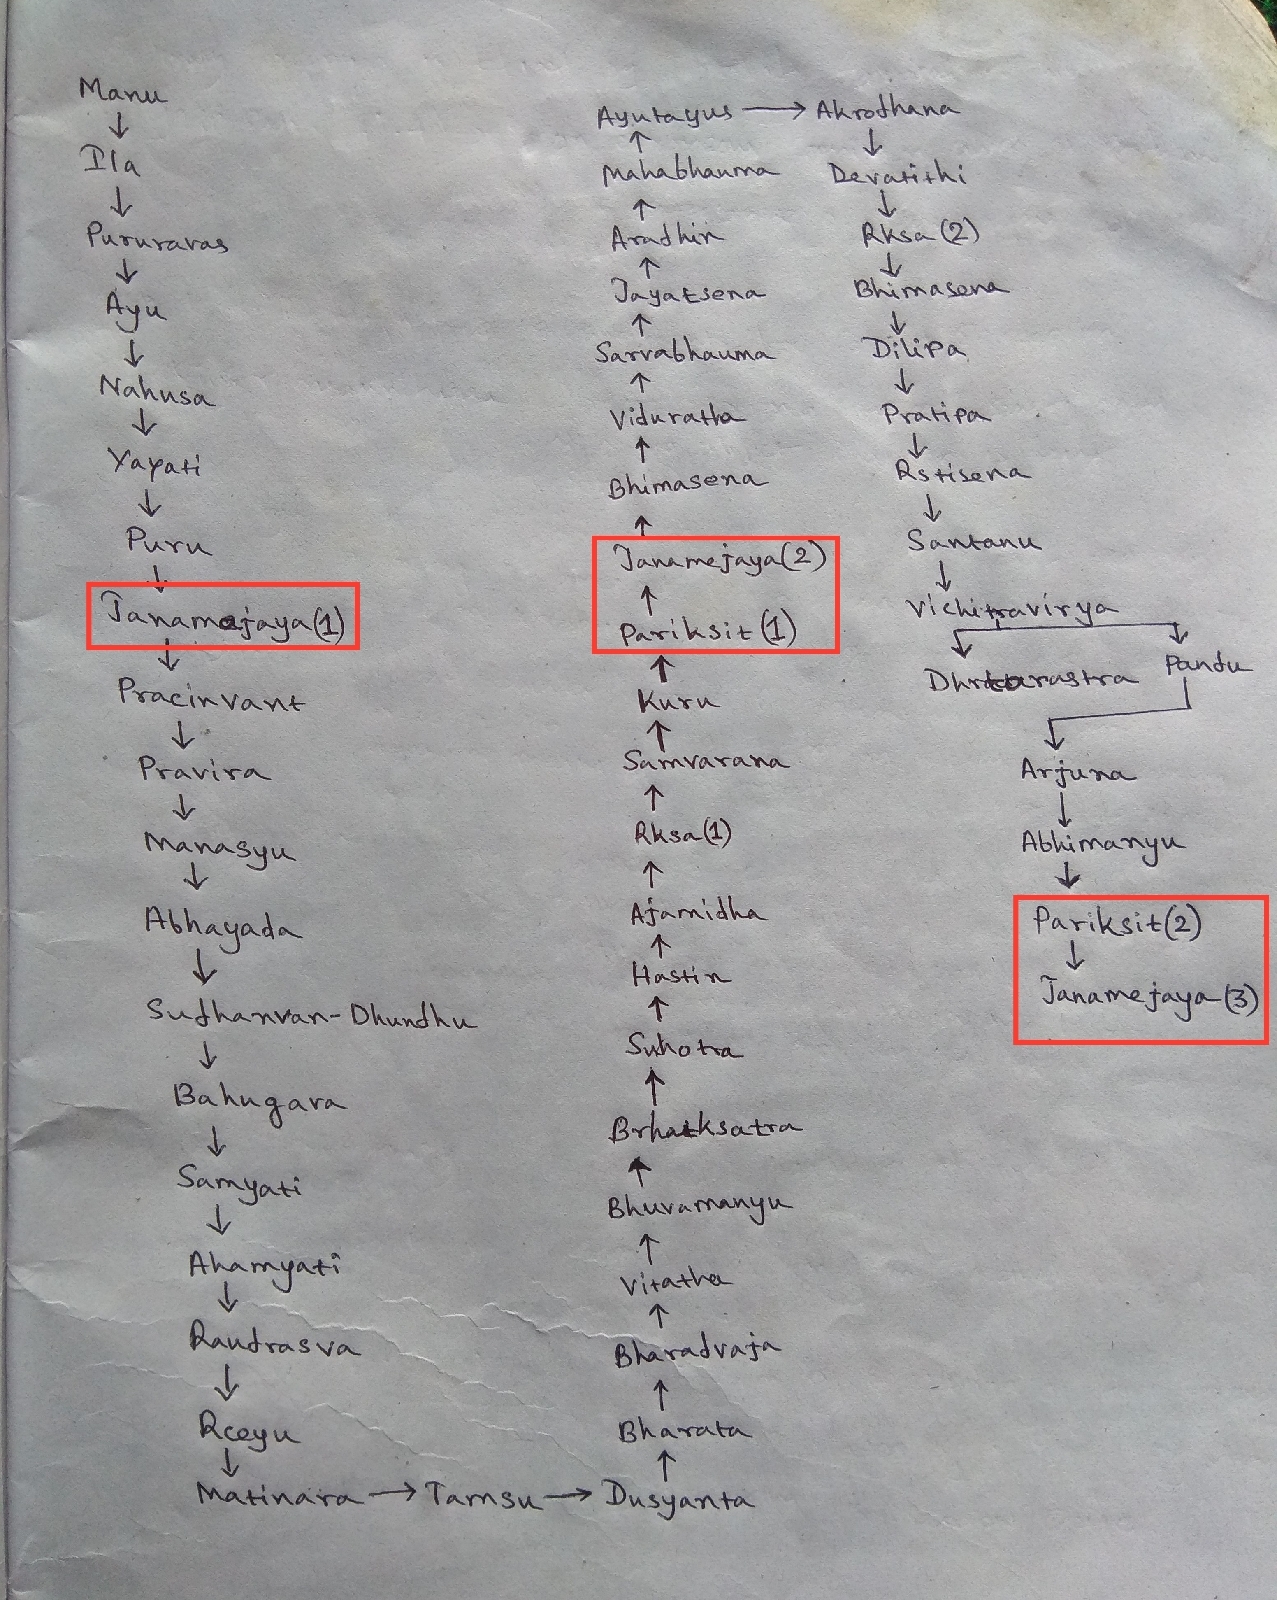 Manu
Ila
Pururavas
Ayu
Nahusa
Yayati
Puru
Janamejaya(1)
Pracinvant
Pravira
Manasyu
Abhayada
Sudhanvan-Dhundhu
Bahugava
Samyati
Ahamyati
Raudrasva
Rceyu
Matinara → Tamsu → Dusyanta
Bharata
Bharadvaja
Vitatha
Bhuvamanyu
Brhatksatra
Suhotra
Hastin
Ajamidha
Rksa(1)
Samvarana
Kuru
Pariksit(1)
Janamejaya(2)
Bhimasena
Viduratha
Sarvabhauma
Jayatsena
Aradhin
Mahabhauma
Ayutayus → Akrodhana
Devatithi
Rksa(2)
Bhimasena
Dilipa
Pratipa
Rstisena
Santanu
Vichitravirya
Dhrtarastra Pandu
Arjuna
Abhimanyu
Pariksit(2)
Janamejaya(3)